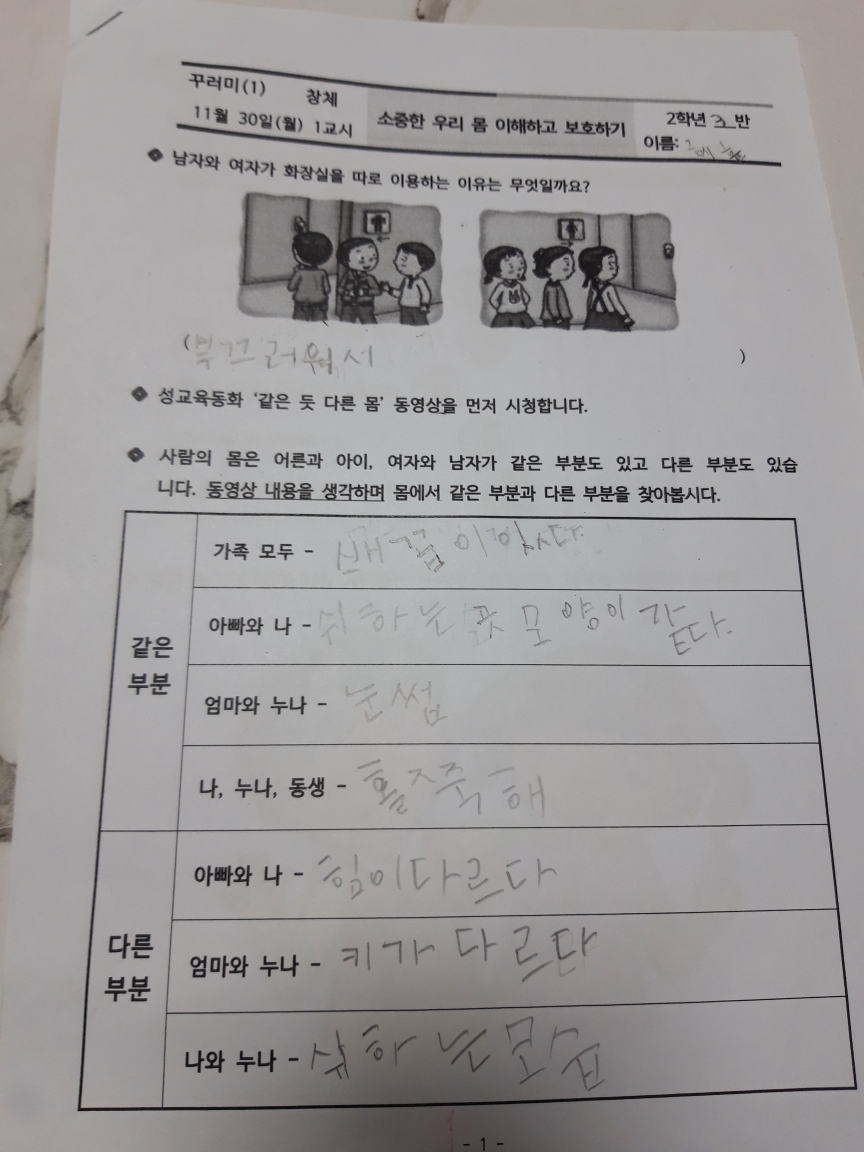 꾸러미(1) 창체
11월 30일(월) 1교시
소중한 우리 몸 이해하고 보호하기
2학년 3 반
이름:
남자와 여자가 화장실을 따로 이용하는 이유는 무엇일까요?
(부끄러워서 )
성교육동화 '같은 듯 다른 몸' 동영상을 먼저 시청합니다.
사람의 몸은 어른과 아이, 여자와 남자가 같은 부분도 있고 다른 부분도 있습
니다. 동영상 내용을 생각하며 몸에서 같은 부분과 다른 부분을 찾아봅시다.
같은
부분
가족 모두 -
아빠와 나 - 쉬하는 곳 모양이 같다.
엄마와 누나 - 눈썹
나, 누나, 동생 - 홀쭉해
다른
부분
아빠와 나 - 힘이다르다
엄마와 누나 - 키가 다르다
나와 누나 - 쉬하는모습
- 1 -